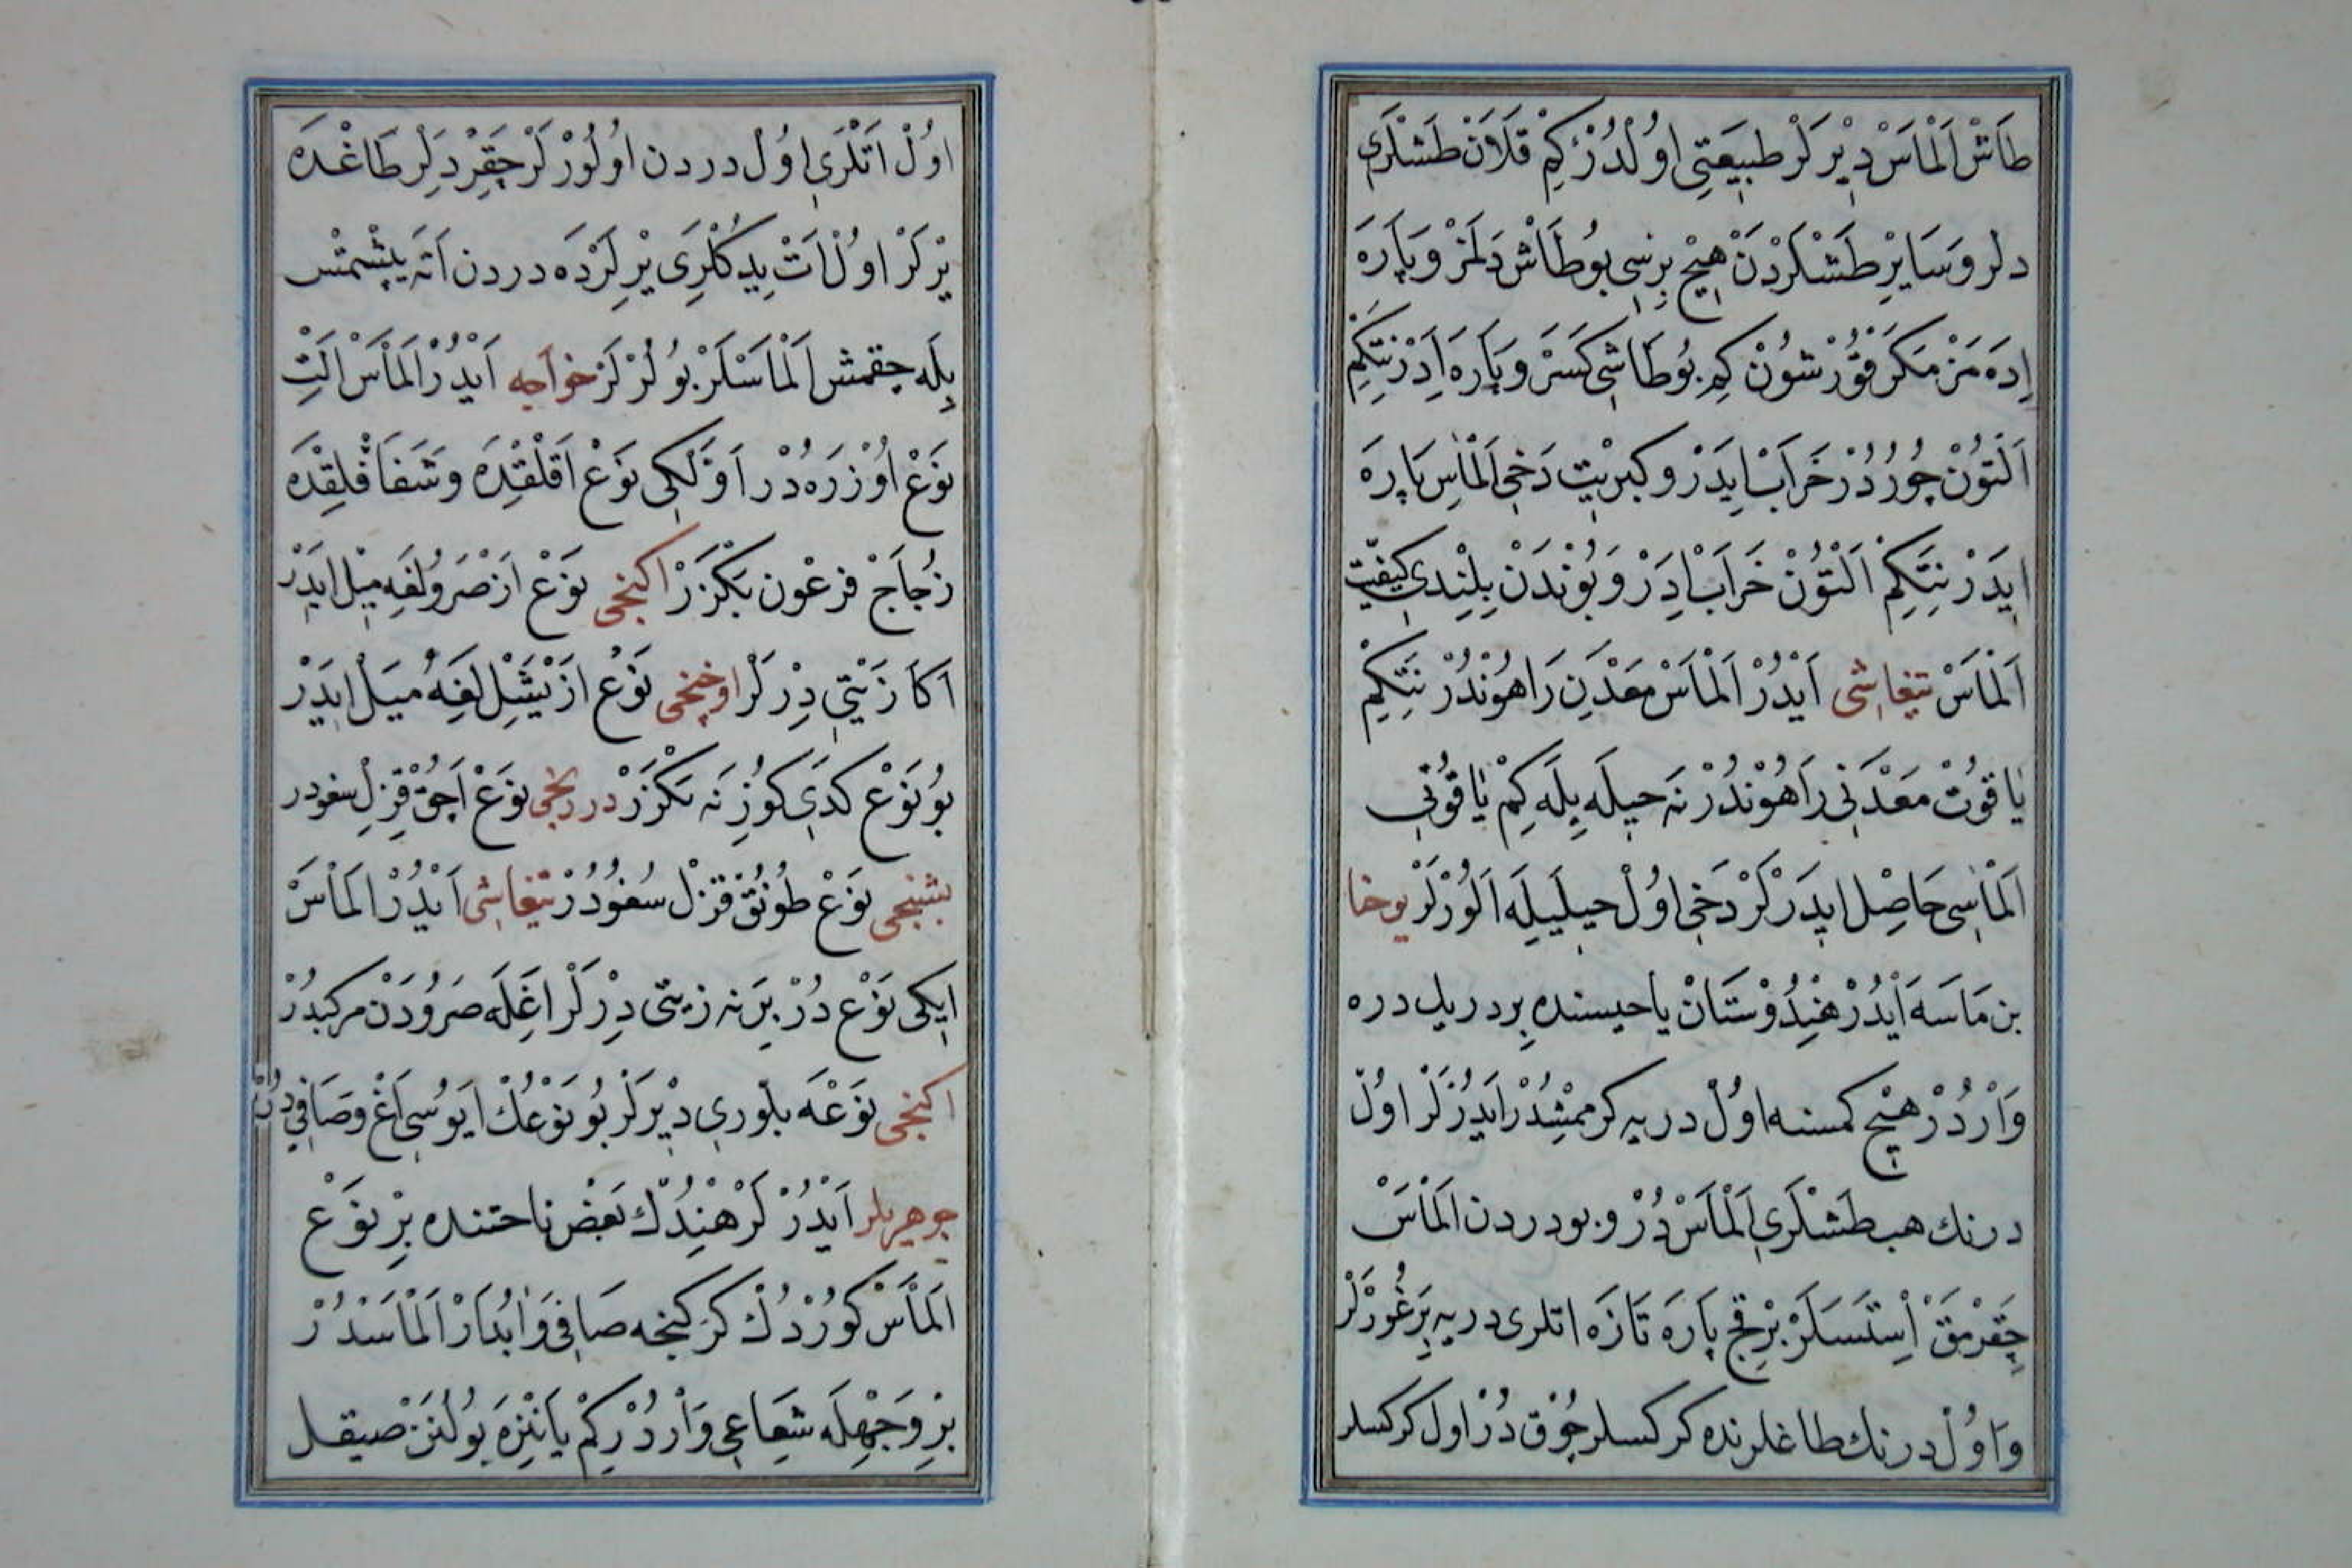 طَاشْ اَلْمَاسْ دِيْرَلَرْ طَبِيعَتِي اوُلْدُرْ كِمْ قَلَانْ طَشْلَرِي
دلر وَسَايِرْ طَشْلَرْدَنْ هِيْجْ بِرِسِي بُوطَاشْ دَلَمَزْ وپَارَه
اِدَه مَزْ مَكَرْ قُوُّرْشُونْ كِه بُوطَاشِي كَسَرْ وپَارَه اِدَرْ نِتَكِمْ
اَلْتُونْ چُورُدُرْ خَرَابْ اِيدَرْ وكِبْرِيْتِ دَخِي اَلْمَاسِ پَارَه
اِيدَرْ نِتَكِمْ اَلْتُونْ خَرَابْ اِدَرْ وَبُونْدَنْ بِلِنْدِي كيفيّت
اَلْمَاسْ تيفاشى اَيْدُرْ اَلْمَاسْ مَعْدَنِ رَاهُونْدُرْ نِتَكِمْ
يَاقوُتْ مَعْدَنِي رَاهُونْدُرْ نَه حِيلَه يِلَه كِمْ يَاقوُتِي
اَلْمَاسِي حَاصِل اِيدَرْلَرْ دَخِي اوُلْ حِيلَيلَه اَلوُرْلَرْ يوحنا
بن مَاسَه اَيْدُرْ هِنْدُوْسْتَانْ ياحيسنده بِر در يك دره
وَارْدُرْ هِيْچْ كمسنه اوُلْ دريه كرممِشْدُرْ اَيدُرْلَرْ اوُلْ
درنك هب طَشْلَرِي اَلْمَاسْدُرْ و بو دردن اَلْمَاسْ
چِقَرْمَقْ اِسْتَسَلَرْ بِرْقچ پَارَه تَازَه اتلرى دريه بَرَغُورْلَرْ
وَاوُلْ درنك طاغلرنده كركسلر چُوْق دُرْ اول كركسلر
اوُلْ اَتْلَرِي اوُلْ دردن اوُلوُرْلَرْ چَقِرْدِلَرْ طَاغْدَه
يِرْلَرْ اوُلْ اَتْ يِدِكْلَرِي يِرْلَرْدَه دردن اَتَه يپشمش
بِلَه چقمش اَلْمَاسْلَرْ بُولُرْلَرْ خواجه اَيْدُرْ اَلْمَاسْ اَلْتِي
نَوْعْ اُوْزَرَه دُرْ اَوَّلكى نَوْعْ اَقْلَقْدَه وَشَفَافْلِقْدَه
زُجَاجْ فرعون بَكْزَرْ اكنجى نَوْعْ اَزْ صَرُولُغَه مِيْل اِيدَرْ
اَكَا زَيْتِي دِرْلَرْ اوچنجى نَوْعْ اَزْ يَشِلْلُغَه مَيْل اِيدَرْ
بُو نَوْعْ كدى كوُزِنَه بَكْزَرْ دردنجى نَوْعْ اَچُقْ قِزِلْ سفودر
بشنجى نَوْعْ طُونُقْ قِزِلْ سُغُودُرْ تيفاشى اَيْدُرْ اَلْمَاسْ
اِيكِي نَوْعْ دُرْ بِرِنَه زيتى دِرْلَرْ اغِلَه صَرُودَنْ مركبدُرْ
اكنجى نَوْعَه بلّورى دِيْرلَرْ بُو نَوْعُكْ ايوُسِي اَغْ وصَافِي
جوهريلر اَيْدُرْلَرْ هِنْدُكْ بَعْضْ ناحتنده بِرْ نَوْعْ
اَلْمَاسْ كورْدُكْ كَرْكنجه صَافِي وَابْدَارْ اَلْمَاسْدُرْ
بِرْ وَجْهِلَه شُعَاعِي وَارْدُرْ كِمْ يَانِنْدَه بُولُنَنْ صيقل